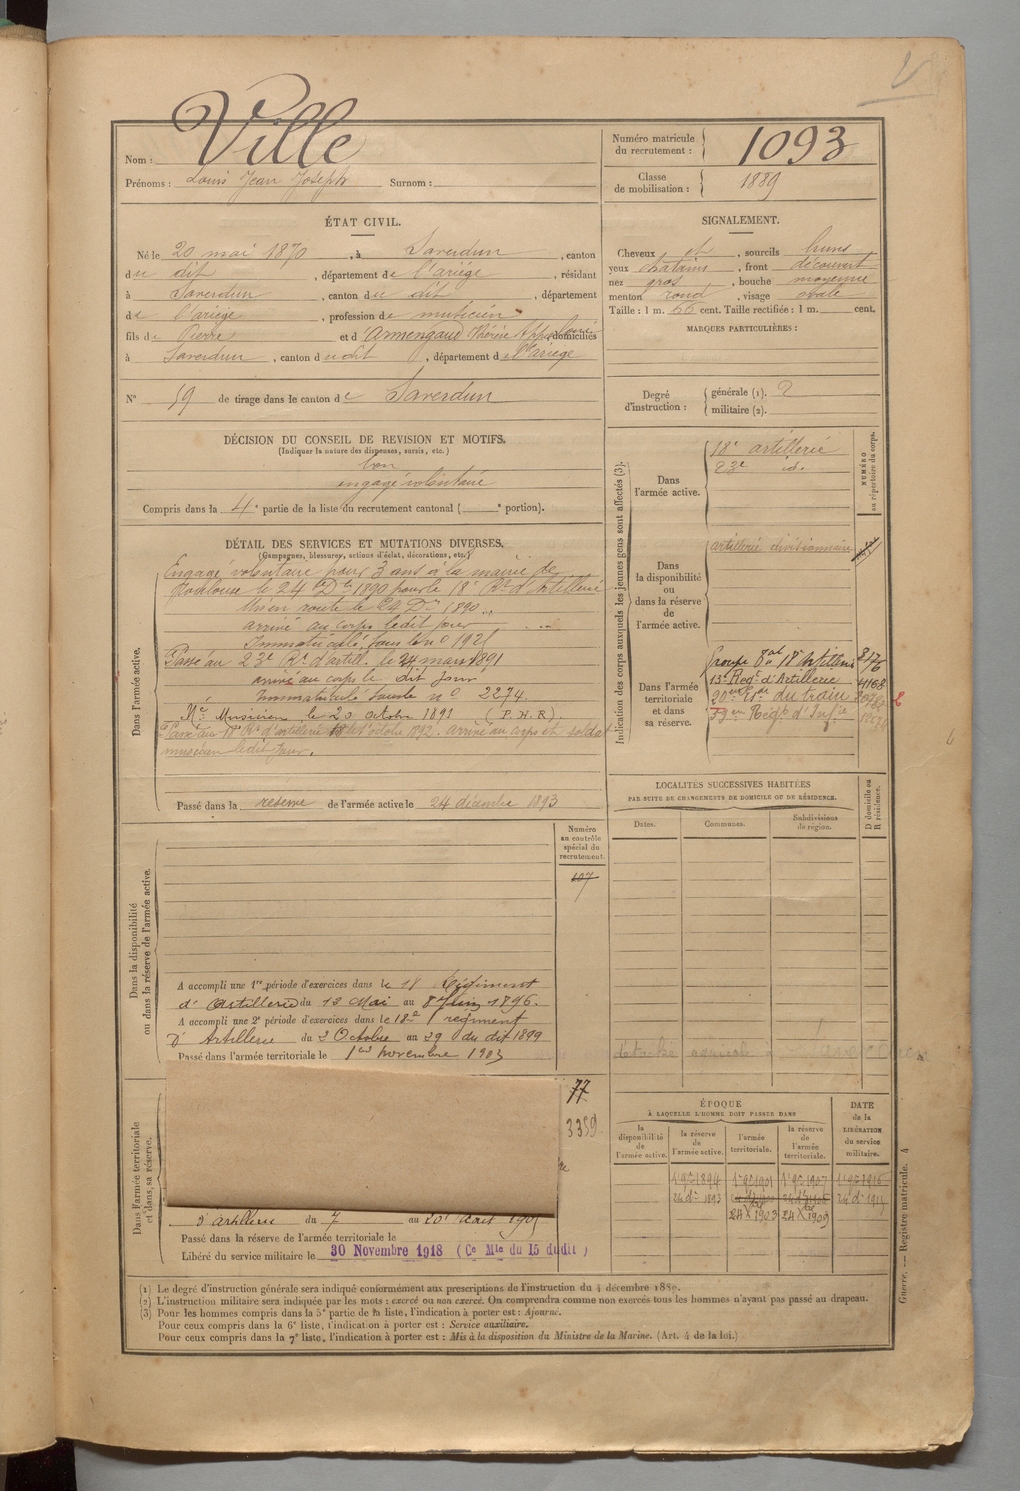 Ville
Nom :
Prénoms : Louis Jean Joseph Surnom :
Numéro matricule du recrutement : 1093
Classe de mobilisation : 1889
ÉTAT CIVIL.
Né le 20 mai 1870, à Saverdun, canton
du dit, département de l'ariège, résidant
à Saverdun, canton du dit, département
de l'ariège, profession de musicien
fils de Pierre et d'Armengaud Thérèse Appolonie domiciliés
à Saverdun, canton dudit, département de l'ariège
N° 59 de tirage dans le canton de Saverdun
SIGNALEMENT.
Cheveux et, sourcils bruns
yeux chatains, front découvert
nez gros, bouche moyenne
menton rond, visage ovale
Taille : 1 m. 66 cent. Taille rectifiée : 1 m. cent.
MARQUES PARTICULIÈRES :
Degré d'instruction : générale (1). 2
militaire (2).
DÉCISION DU CONSEIL DE REVISION ET MOTIFS.
(Indiquer la nature des dispenses, sursis, etc.)
bon
engagé volontaire
Compris dans la 4e partie de la liste du recrutement cantonal ( e portion).
DÉTAIL DES SERVICES ET MUTATIONS DIVERSES.
(Campagnes, blessures, actions d'éclat, décorations, etc.)
Dans l'armée active.
Engagé volontaire pour 3 ans à la mairie de
Toulouse le 24 Dbre 1890 pour le 18e Rt d'Artillerie
Mis en route le 24 Dbre 1890
arrivé au corps le dit jour
Immatriculé sous le no 1921
Passé au 23e Rt d'artill. le 24 mars 1891
arrivé au corps le dit jour
Immatriculé sous le no 2274
Mc Musicien le 20 octobre 1891 (P.H.R)
Passé au 18e Rt d'artillerie le 1er octobre 1892. arrivé au corps et soldat
musicien le dit jour.
Passé dans la réserve de l'armée active le 24 décembre 1893
Indication des corps auxquels les jeunes gens sont affectés (3).
NUMÉRO au répertoire du corps.
Dans l'armée active.
18e artillerie
23e id.
Dans la disponibilité ou dans la réserve de l'armée active.
artillerie divisionnaire
Dans l'armée territoriale et dans sa réserve.
Groupe tal du 18e Artillerie 3176
13e Regt d'Artillerie 4168
20e Esc. du train
59e Régt d'Infie
LOCALITÉS SUCCESSIVES HABITÉES
PAR SUITE DE CHANGEMENTS DE DOMICILE OU DE RÉSIDENCE.
D domicile ou R résidence.
Dates. Communes. Subdivisions de région.
Dans la disponibilité ou dans la réserve de l'armée active.
Numéro au contrôle spécial du recrutement.
107
A accompli une 1re période d'exercices dans le 18 Régiment
d'Artillerie du 12 Mai au 8 Juin 1896.
A accompli une 2e période d'exercices dans le 18e régiment
d'Artillerie du 2 Octobre au 29 du dit 1899
Passé dans l'armée territoriale le 1er novembre 1903
Dans l'armée territoriale et dans sa réserve.
77
3359
d'artillerie du 7 au 20 Aout 1905
Passé dans la réserve de l'armée territoriale le
Libéré du service militaire le 30 Novembre 1918 (Ce Mle du 15 dudit)
ÉPOQUE
À LAQUELLE L'HOMME DOIT PASSER DANS
la disponibilité de l'armée active. la réserve de l'armée active. l'armée territoriale. la réserve de l'armée territoriale.
DATE de la LIBÉRATION du service militaire.
1er 9bre 1894 1er 9bre 1901 1er 9bre 1907 1er 9bre 1916
24 dbre 1893 24 dbre 1915
24 Xbre 1903 24 Xbre 1909
Guerre. — Registre matricule. 4
(1) Le degré d'instruction générale sera indiqué conformément aux prescriptions de l'instruction du 4 décembre 1889.
(2) L'instruction militaire sera indiquée par les mots : exercé ou non exercé. On comprendra comme non exercés tous les hommes n'ayant pas passé au drapeau.
(3) Pour les hommes compris dans la 5e partie de la liste, l'indication à porter est : Ajourné.
Pour ceux compris dans la 6e liste, l'indication à porter est : Service auxiliaire.
Pour ceux compris dans la 7e liste, l'indication à porter est : Mis à la disposition du Ministre de la Marine. (Art. 4 de la loi.)